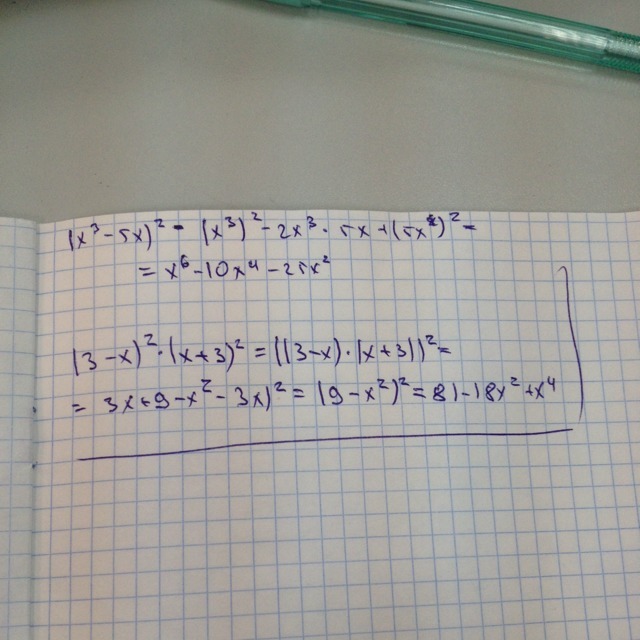 (x³-5x)² = (x³)²-2x³·5x+(5x)²=
= x⁶-10x⁴-25x²
(3-x)²·(x+3)² = ((3-x)·(x+3))²=
= 3x+9-x²-3x)² = (9-x²)² = 81-18x²+x⁴